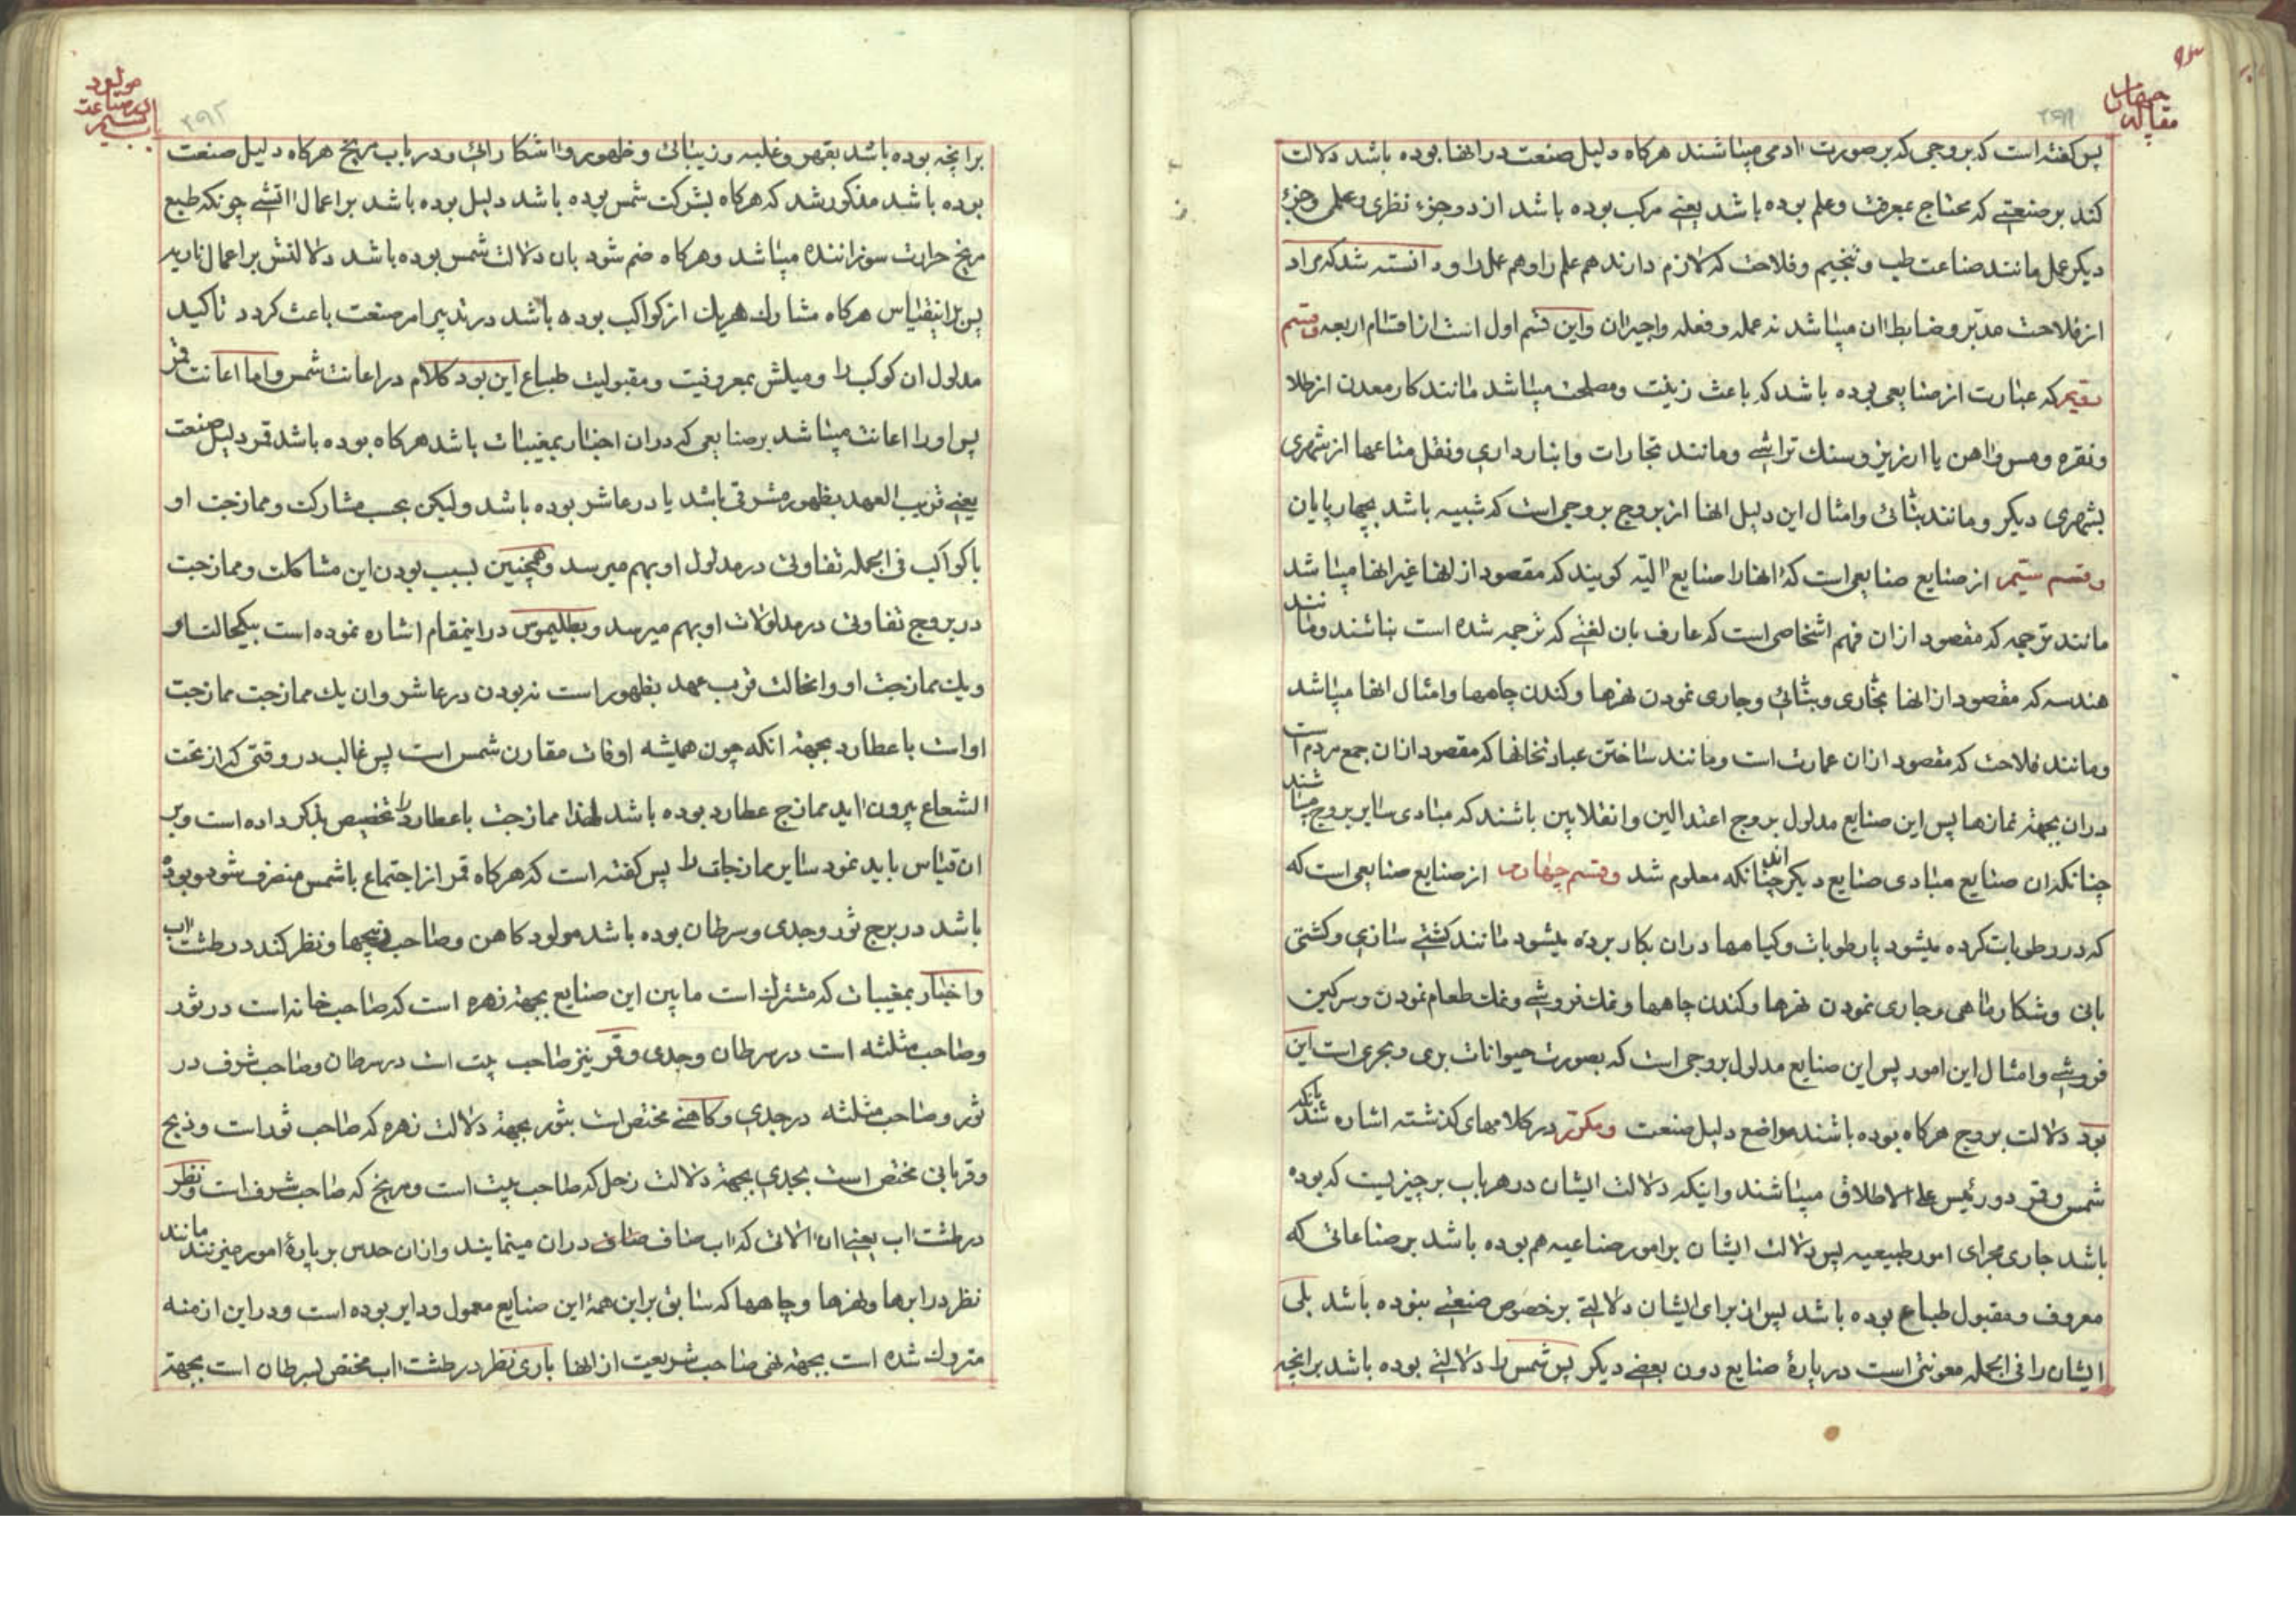 مقاله چهارم
پس کفته است که بروجی که بر صورت ادمی میباشند هرکاه دلیل صنعت در انها بوده باشد دلالت
کند بر صنعتی که محتاج بمعرفت و علم بوده باشد یعنی مرکب بوده باشد از دو جزء نظری و علمی و جزء
دیکر عمل مانند صناعت طب و تنجیم و فلاحت که لازم دارند هم علم را و هم عمل را و دانسته شد که مراد
از فلاحت مدبر و ضابط ان میباشد نه عمله و فعله و اجیران و این قسم اول است از اقسام اربعه و قسم
دویم که عبارت از صنایعی بوده باشد که باعث زینت و مصلحت میباشد مانند کار معدن از طلا
و نقره و مس و اهن یا ارزیز و سنک تراشی و مانند تجارات و انبارداری و نقل متاعها از شهری
بشهری دیکر و مانند بنائی و امثال این دلیل انها از بروج بروجی است که شبیه باشد بچهارپایان
و قسم سیم از صنایع صنایعی است که انها را صنایع الیه کویند که مقصود از انها غیر انها میباشد
مانند ترجمه که مقصود از ان فهم اشخاصی است که عارف بان لغتی که ترجمه شده است نباشند و مانند
هندسه که مقصود از انها نجاری و بنائی و جاری نمودن نهرها و کندن چاهها و امثال انها میباشد
و مانند فلاحت که مقصود از ان عمارت است و مانند ساختن عبادتخانها که مقصود از ان جمع مردم است
در ان بجهة نمازها پس این صنایع مدلول بروج اعتدالین و انقلابین باشند که مبادی سایر بروج میباشند
چنانکه ان صنایع مبادی صنایع دیکراند چنانکه معلوم شد و قسم چهارم از صنایع صنایعی است که
که در رطوبات کرده میشود یا رطوبات و کیاهها در ان بکار برده میشود مانند کشتی سازی و کشتی
بانی و شکار ماهی و جاری نمودن نهرها و کندن چاهها و نمک فروشی و نمک طعام نمودن و سرکین
فروشی و امثال این امور پس این صنایع مدلول بروجی است که بصورت حیوانات بری و بحری است این
بود دلالت بروج هرکاه بوده باشند مواضع دلیل صنعت و مکرر در کلامهای کذشته اشاره شد بانکه
شمس و قمر دو رئیس علی الاطلاق میباشند و اینکه دلالت ایشان در هر باب بر چیزیست که بوده
باشد جاری مجرای امور طبیعیه پس دلالت ایشان بر امور صناعیه هم بوده باشد بر صناعاتی که
معروف و مقبول طباع بوده باشد پس از برای ایشان دلالتی بر خصوص صنعتی نبوده باشد بلی
ایشان را فی الجمله معونتی است در بارهٔ صنایع دون بعضی دیکر پس شمس را دلالتی بوده باشد بر انچه
مولود
باب سیم
بر انچه بوده باشد بقهر و غلبه و زیبائی و ظهور و اشکارائی و در باب مریخ هرکاه دلیل صنعت
بوده باشد مذکور شد که هرکاه بشرکت شمس بوده باشد دلیل بوده باشد بر اعمال اتشی چونکه طبع
مریخ حرارت سوزاننده میباشد و هرکاه ضم شود بان دلالت شمس بوده باشد دلالتش بر اعمال ناریه
پس بر اینقیاس هرکاه مشارک هریک از کواکب بوده باشد در تدبیر امر صنعت باعث کردد تاکید
مدلول ان کوکب را و میلش بمعروفیت و مقبولیت طباع این بود کلام در اعانت شمس و اما اعانت قمر
پس او را اعانت میباشد بر صنایعی که در ان اخبار بمغیبات باشد هرکاه بوده باشد قمر دلیل صنعت
یعنی قریب العهد بظهور مشرقی باشد یا در عاشر بوده باشد ولیکن بحسب مشارکت و ممازجت او
با کواکب فی الجمله تفاوتی در مدلول او بهم میرسد و همچنین بسبب بودن این مشاکلت و ممازجت
در بروج تفاوتی در مدلولات او بهم میرسد و بطلیموس در اینمقام اشاره نموده است بیکحالت او
و یک ممازجت او و انحالت قرب عهد بظهور است نه بودن در عاشر و ان یک ممازجت ممازجت
اوست با عطارد بجهة انکه چون همیشه اوقات مقارن شمس است پس غالب در وقتی که از تحت
الشعاع بیرون اید ممازج عطارد بوده باشد لهذا ممازجت با عطارد را تخصیص بذکر داده است و بر
ان قیاس باید نمود سایر ممازجات را پس کفته است که هرکاه قمر از اجتماع با شمس منصرف شود و بوده
باشد در برج ثور و جدی و سرطان بوده باشد مولود کاهن و صاحب ذبیحها و نظر کند در طشت اب
و اخبار بمغیبات که مشترک است ما بین این صنایع بجهة زهره است که صاحب خانه است در ثور
و صاحب مثلثه است در سرطان و جدی و قمر نیز صاحب بیت است در سرطان و صاحب شرف در
ثور و صاحب مثلثه در جدی و کاهنی مختص است بثور بجهة دلالت زهره که صاحب ثور است و ذبح
و قربانی مختص است بجدی بجهة دلالت زحل که صاحب بیت است و مریخ که صاحب شرف است و نظر
در طشت اب یعنی ان الاتی که اب صاف در ان مینمایند و از ان حدس بر پارهٔ امور میزنند مانند
نظر در ابرها و نهرها و چاهها که سابق بر این همهٔ این صنایع معمول و دایر بوده است و در این ازمنه
متروک شده است بجهة نهی صاحب شریعت از انها باری نظر در طشت اب مختص بسرطان است بجهة